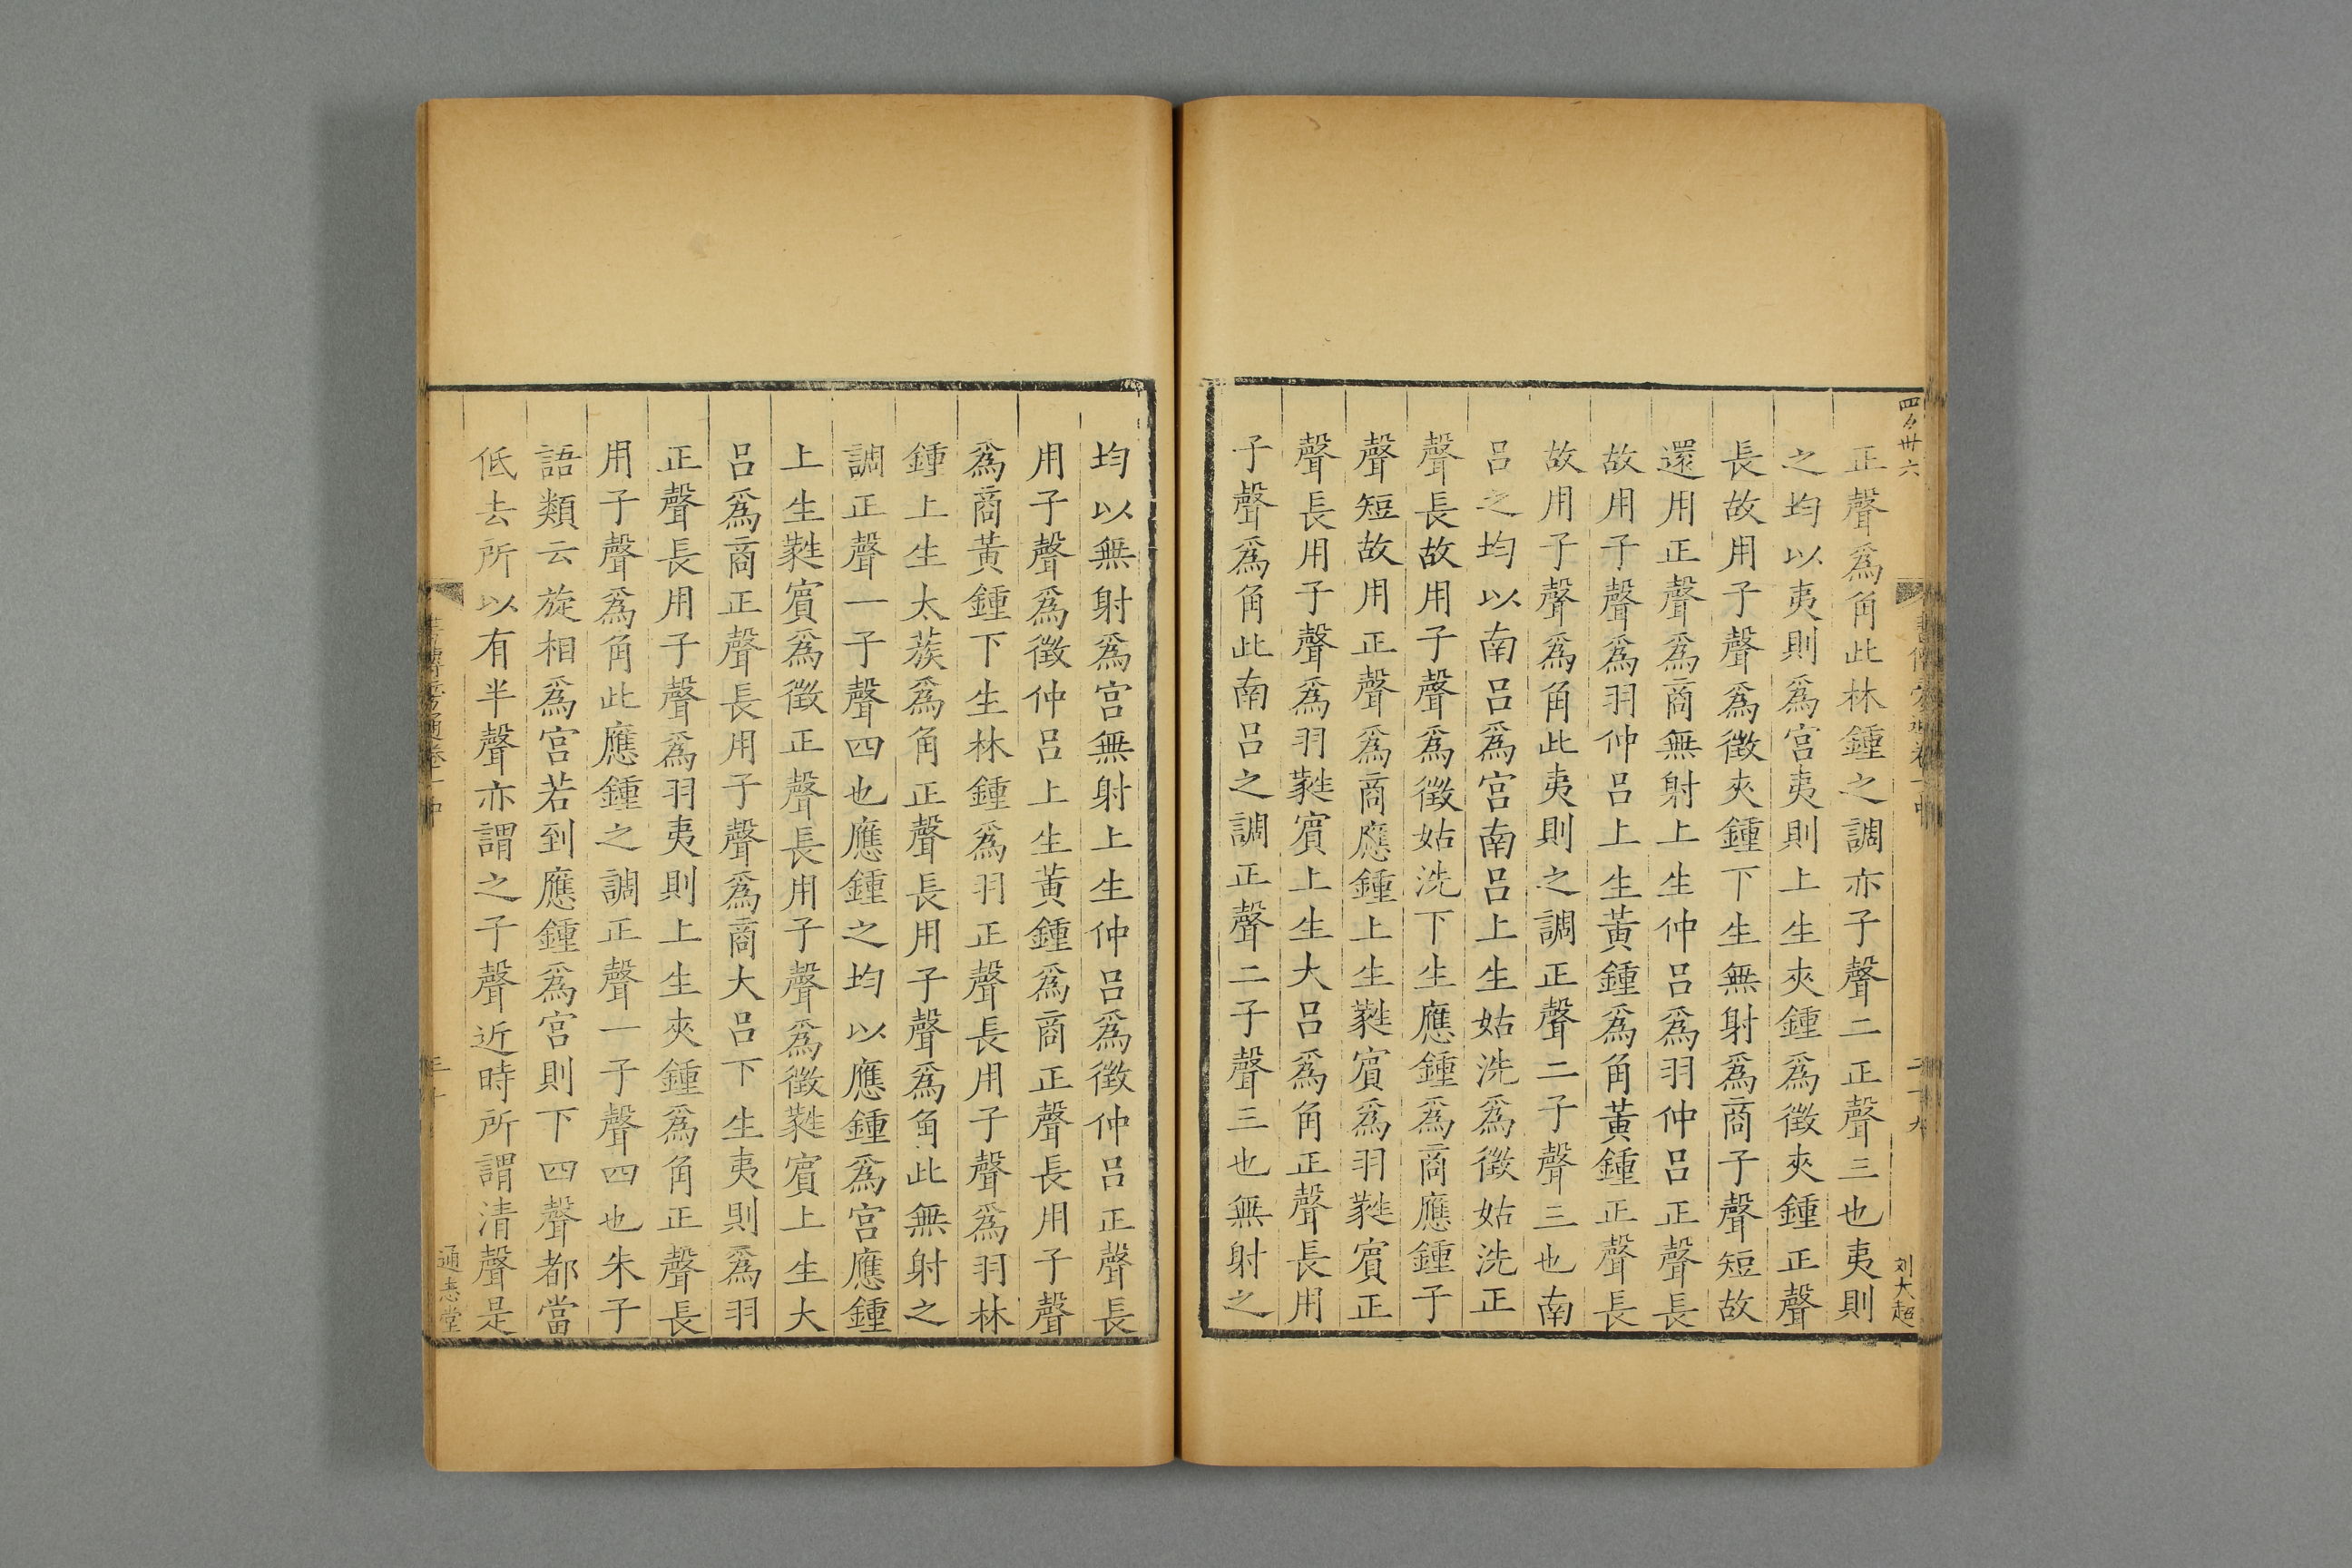 四百卅六
書傳旁通卷一中
二十九
刘大超
正聲爲角此林鍾之調亦子聲二正聲三也夷則
之均以夷則爲宮夷則上生夾鍾爲徵夾鍾正聲
長故用子聲爲徵夾鍾下生無射爲商子聲短故
還用正聲爲商無射上生仲呂爲羽仲呂正聲長
故用子聲爲羽仲呂上生黃鍾爲角黃鍾正聲長
故用子聲爲角此夷則之調正聲二子聲三也南
呂之均以南呂爲宮南呂上生姑洗爲徵姑洗正
聲長故用子聲爲徵姑洗下生應鍾爲商應鍾子
聲短故用正聲爲商應鍾上生蕤賔爲羽蕤賔正
聲長用子聲爲羽蕤賔上生大呂爲角正聲長用
子聲爲角此南呂之調正聲二子聲三也無射之
均以無射爲宮無射上生仲呂爲徵仲呂正聲長
用子聲爲徵仲呂上生黃鍾爲商正聲長用子聲
爲商黃鍾下生林鍾爲羽正聲長用子聲爲羽林
鍾上生太蔟爲角正聲長用子聲爲角此無射之
調正聲一子聲四也應鍾之均以應鍾爲宮應鍾
上生蕤賔爲徵正聲長用子聲爲徵蕤賔上生大
呂爲商正聲長用子聲爲商大呂下生夷則爲羽
正聲長用子聲爲羽夷則上生夾鍾爲角正聲長
用子聲爲角此應鍾之調正聲一子聲四也朱子
語類云旋相爲宮若到應鍾爲宮則下四聲都當
低去所以有半聲亦謂之子聲近時所謂清聲是
書傳旁通卷一中
通志堂